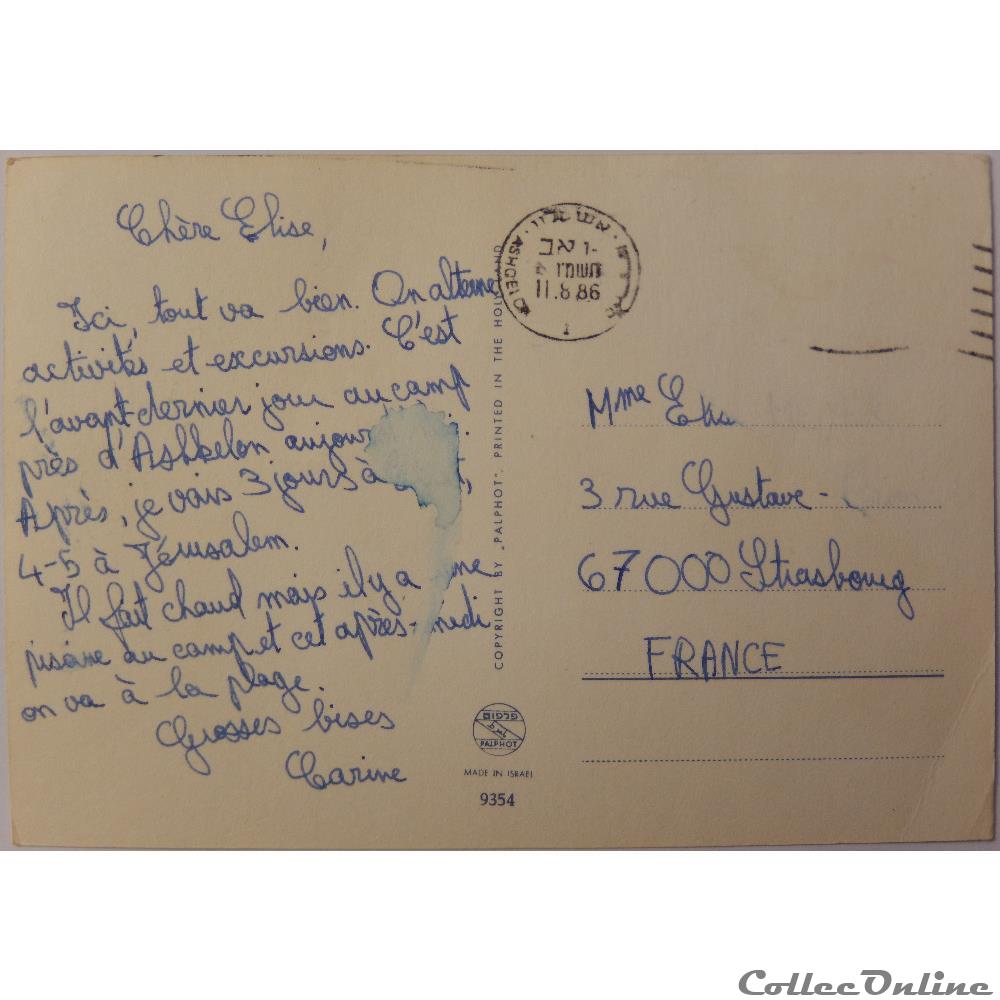 Chère Elise,
Ici, tout va bien. On alterne
activités et excursions. C'est
l'avant-dernier jour au camp
près d'Ashkelon
Après, je vais 3 jours à
4-5 à Jérusalem.
Il fait chaud mais il y a
piscine au camp et cet après-midi
on va à la plage.
Grosses bises
Carine
COPYRIGHT BY „PALPHOT", PRINTED IN THE HOLY LAND
PALPHOT
MADE IN ISRAEL
9354
11.8.86
Mme
3 rue Gustave-
67000 Strasbourg
FRANCE
CollecOnline